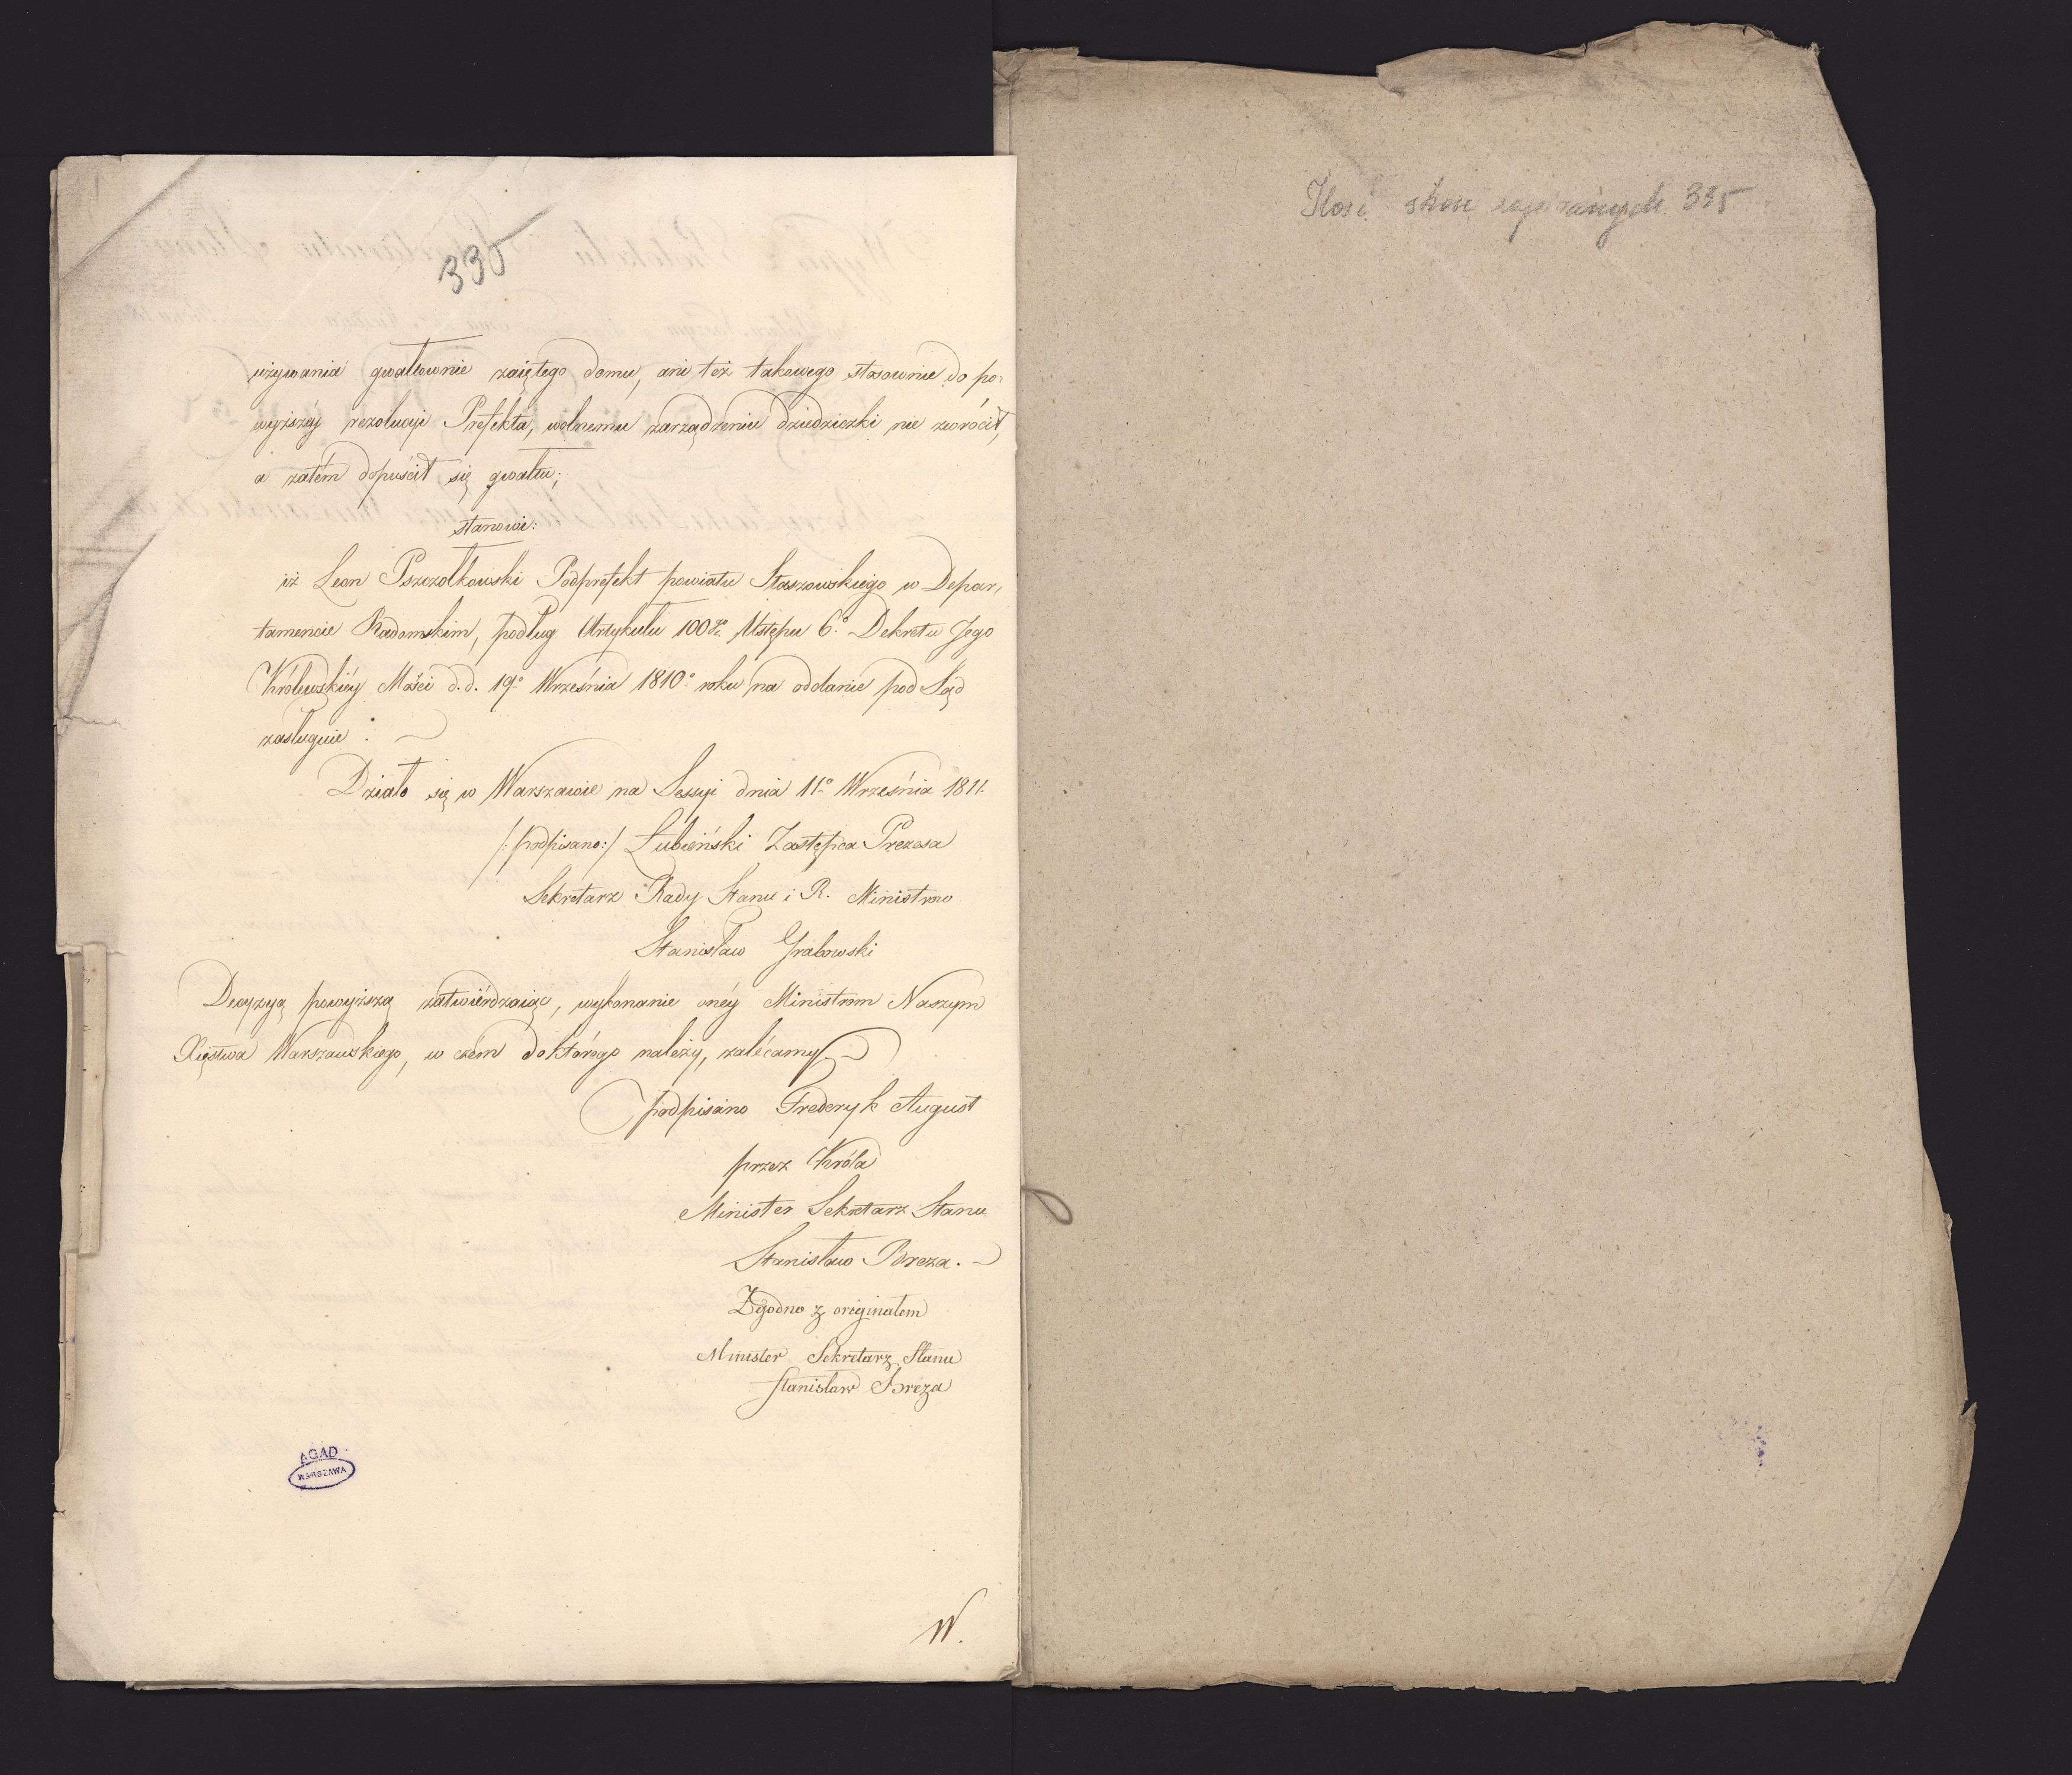 335
używania gwałtownie zaiętego domu, ani też takowego stosownie do po-
wyższéy rezolucyi Prefekta, wolnemu zarządzeniu dziedziczki nie zwrócił,
a zatém dopuścił się gwałtu;
stanowi:
iż Leon Pszczołkowski Podprefekt powiatu Staszowskiego w Depar,
tamencie Radomskim, podług Artykułu 100go Ustępu 6o Dekretu Jego
Królewskiéy Mości d.d. 19o Września 1810o roku na oddanie pod Sąd
zasługuie :
Działo się w Warszawie na Sessyi dnia 11o Września 1811.
/:podpisano:/ Łubieński Zastępca Prezesa
Sekretarz Rady Stanu i R. Ministrow
Stanisław Grabowski
Decyzyą powyższą zatwiérdzaiąc, wykonanie onéy Ministrom Naszym
Xięstwa Warszawskiego, w czém do którego należy, zalécamy
podpisano Frederyk August
przez Króla
Minister Sekretarz Stanu
Stanisław Breza.
Zgodno z originałem
Minister Sekretarz Stanu
Stanisław Breza
AGAD
WARSZAWA
W.
Ilość stron zapisanych 335